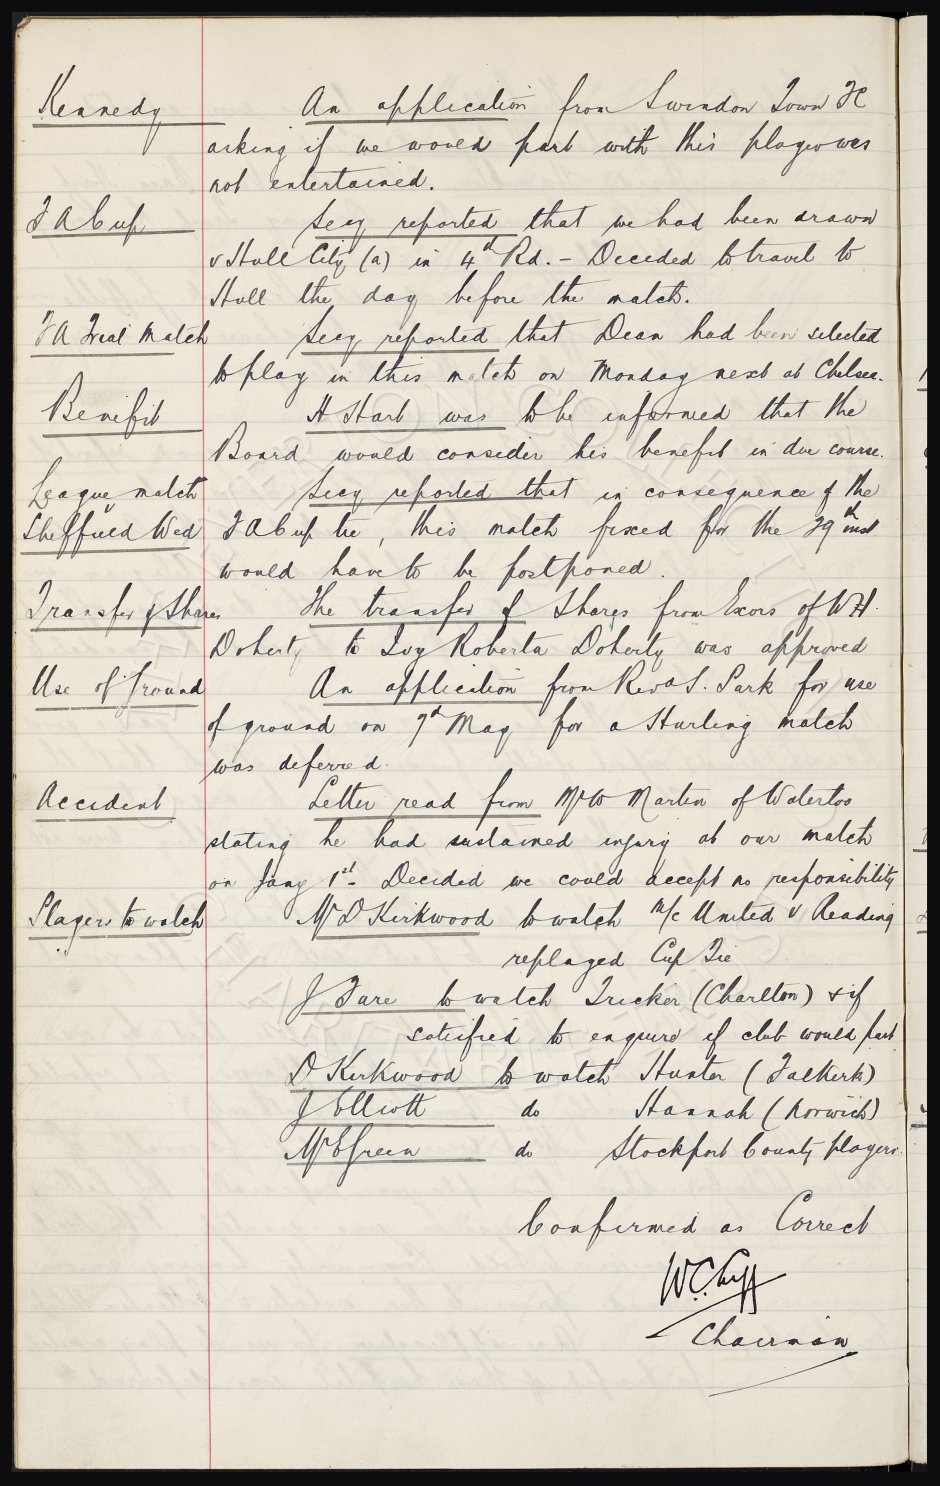 Kennedy An application from Swindon Town FC
asking if we would part with this player was
not entertained.
F A Cup Secy reported that we had been drawn
v Hull City (a) in 4th Rd. - Decided to travel to
Hull the day before the match.
F A Trial Match Secy reported that Dean had been selected
to play in this match on Monday next at Chelsea.
Benefit H Hart was to be informed that the
Board would consider his benefit in due course.
League match Secy reported that in consequence of the
Sheffield Wed F A Cup tie, this match fixed for the 29th inst
would have to be postponed.
Transfer of Shares The transfer of Shares from Exors of W H.
Doherty to Ivy Roberta Doherty was approved
Use of Ground An application from Revd S. Park for use
of ground on 7th May for a Hurling match
was deferred.
Accident Letter read from Mr W Martin of Waterloo
stating he had sustained injury at our match
on Jany 1st - Decided we could accept no responsibility
Players to watch Mr D Kirkwood to watch M/c United v Reading
replayed Cup Tie
J Fare to watch Tricker (Charlton) & if
satisfied to enquire if club would part
D Kirkwood to watch Hunter (Falkirk)
J Elliott do Hannah (Norwich)
Mr E Green do Stockport County players.
Confirmed as Correct
W.C. Cuff
Chairman